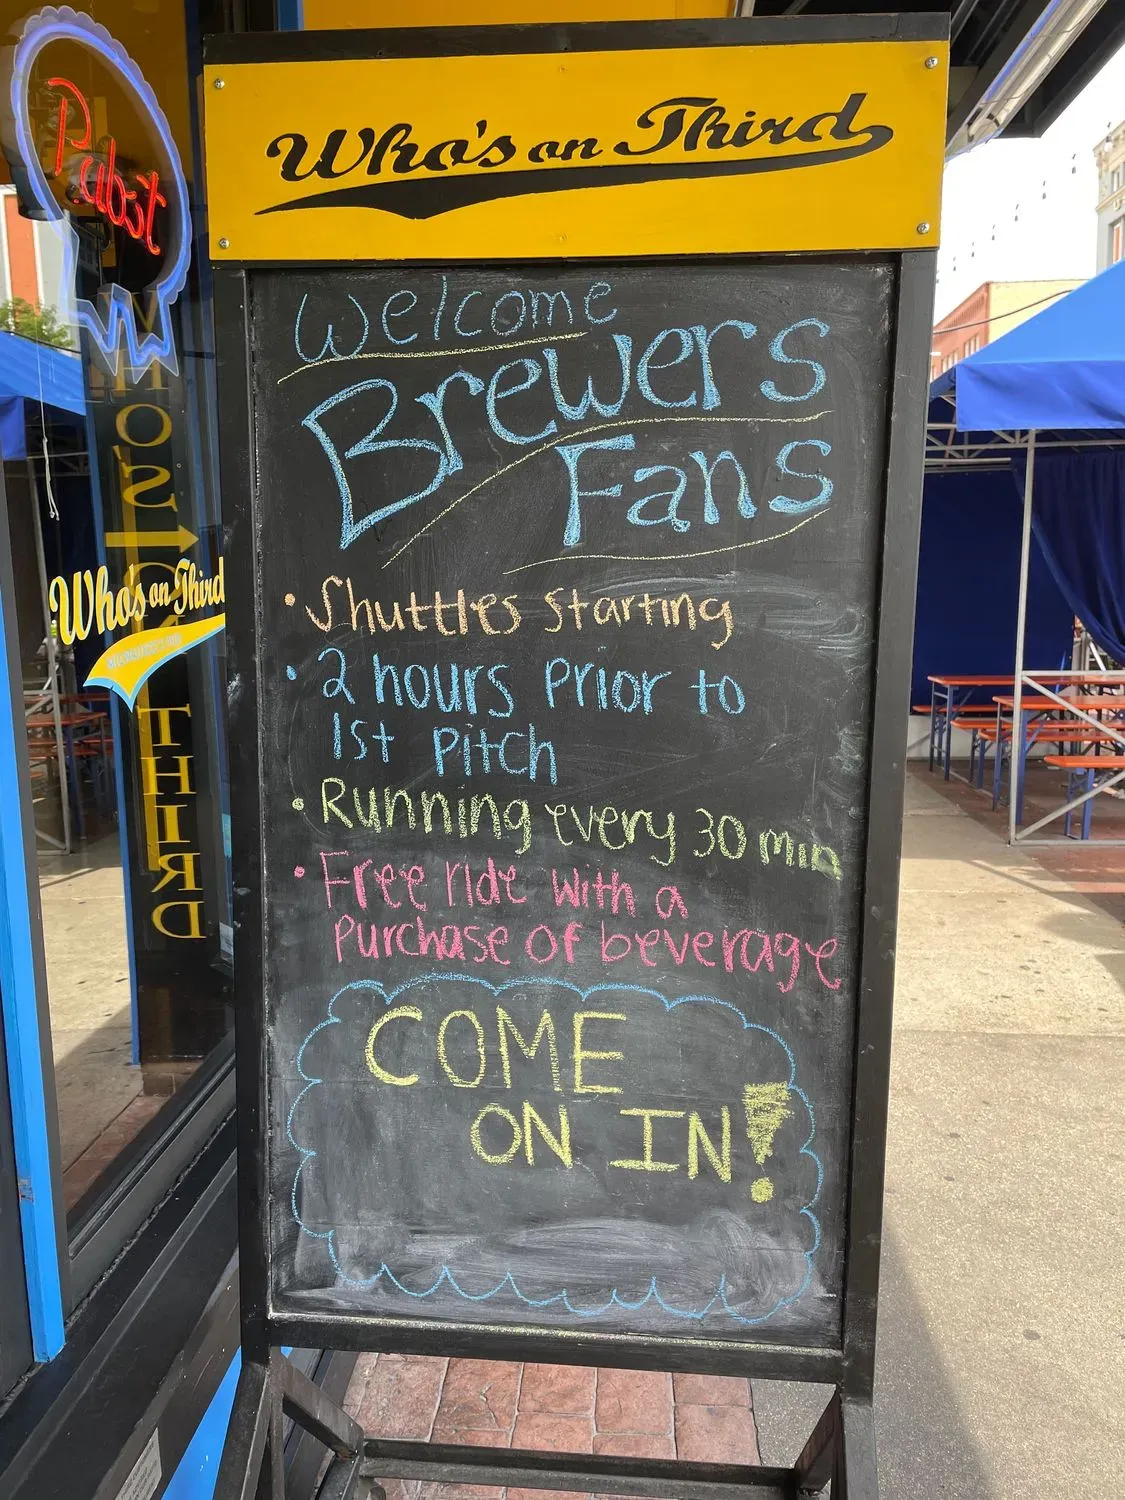 Who's on Third
Pabst
Welcome
Brewers
Fans
• Shuttles Starting
• 2 hours prior to
1st pitch
• Running every 30 min
• Free ride with a
purchase of beverage
COME
ON IN!
Who's on Third
WHO'S ON THIRD